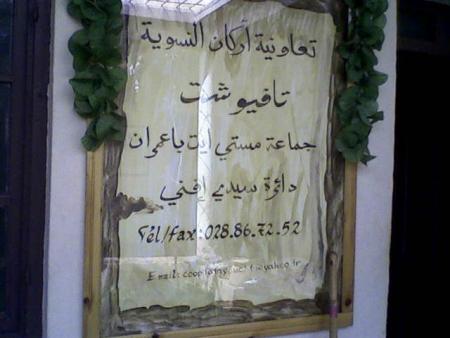 تعاونية أركان النسوية
تافيوشت
جماعة مستي ايت باعمران
دائرة سيدي إفني
Tél/fax: 028.86.72.52
Email: